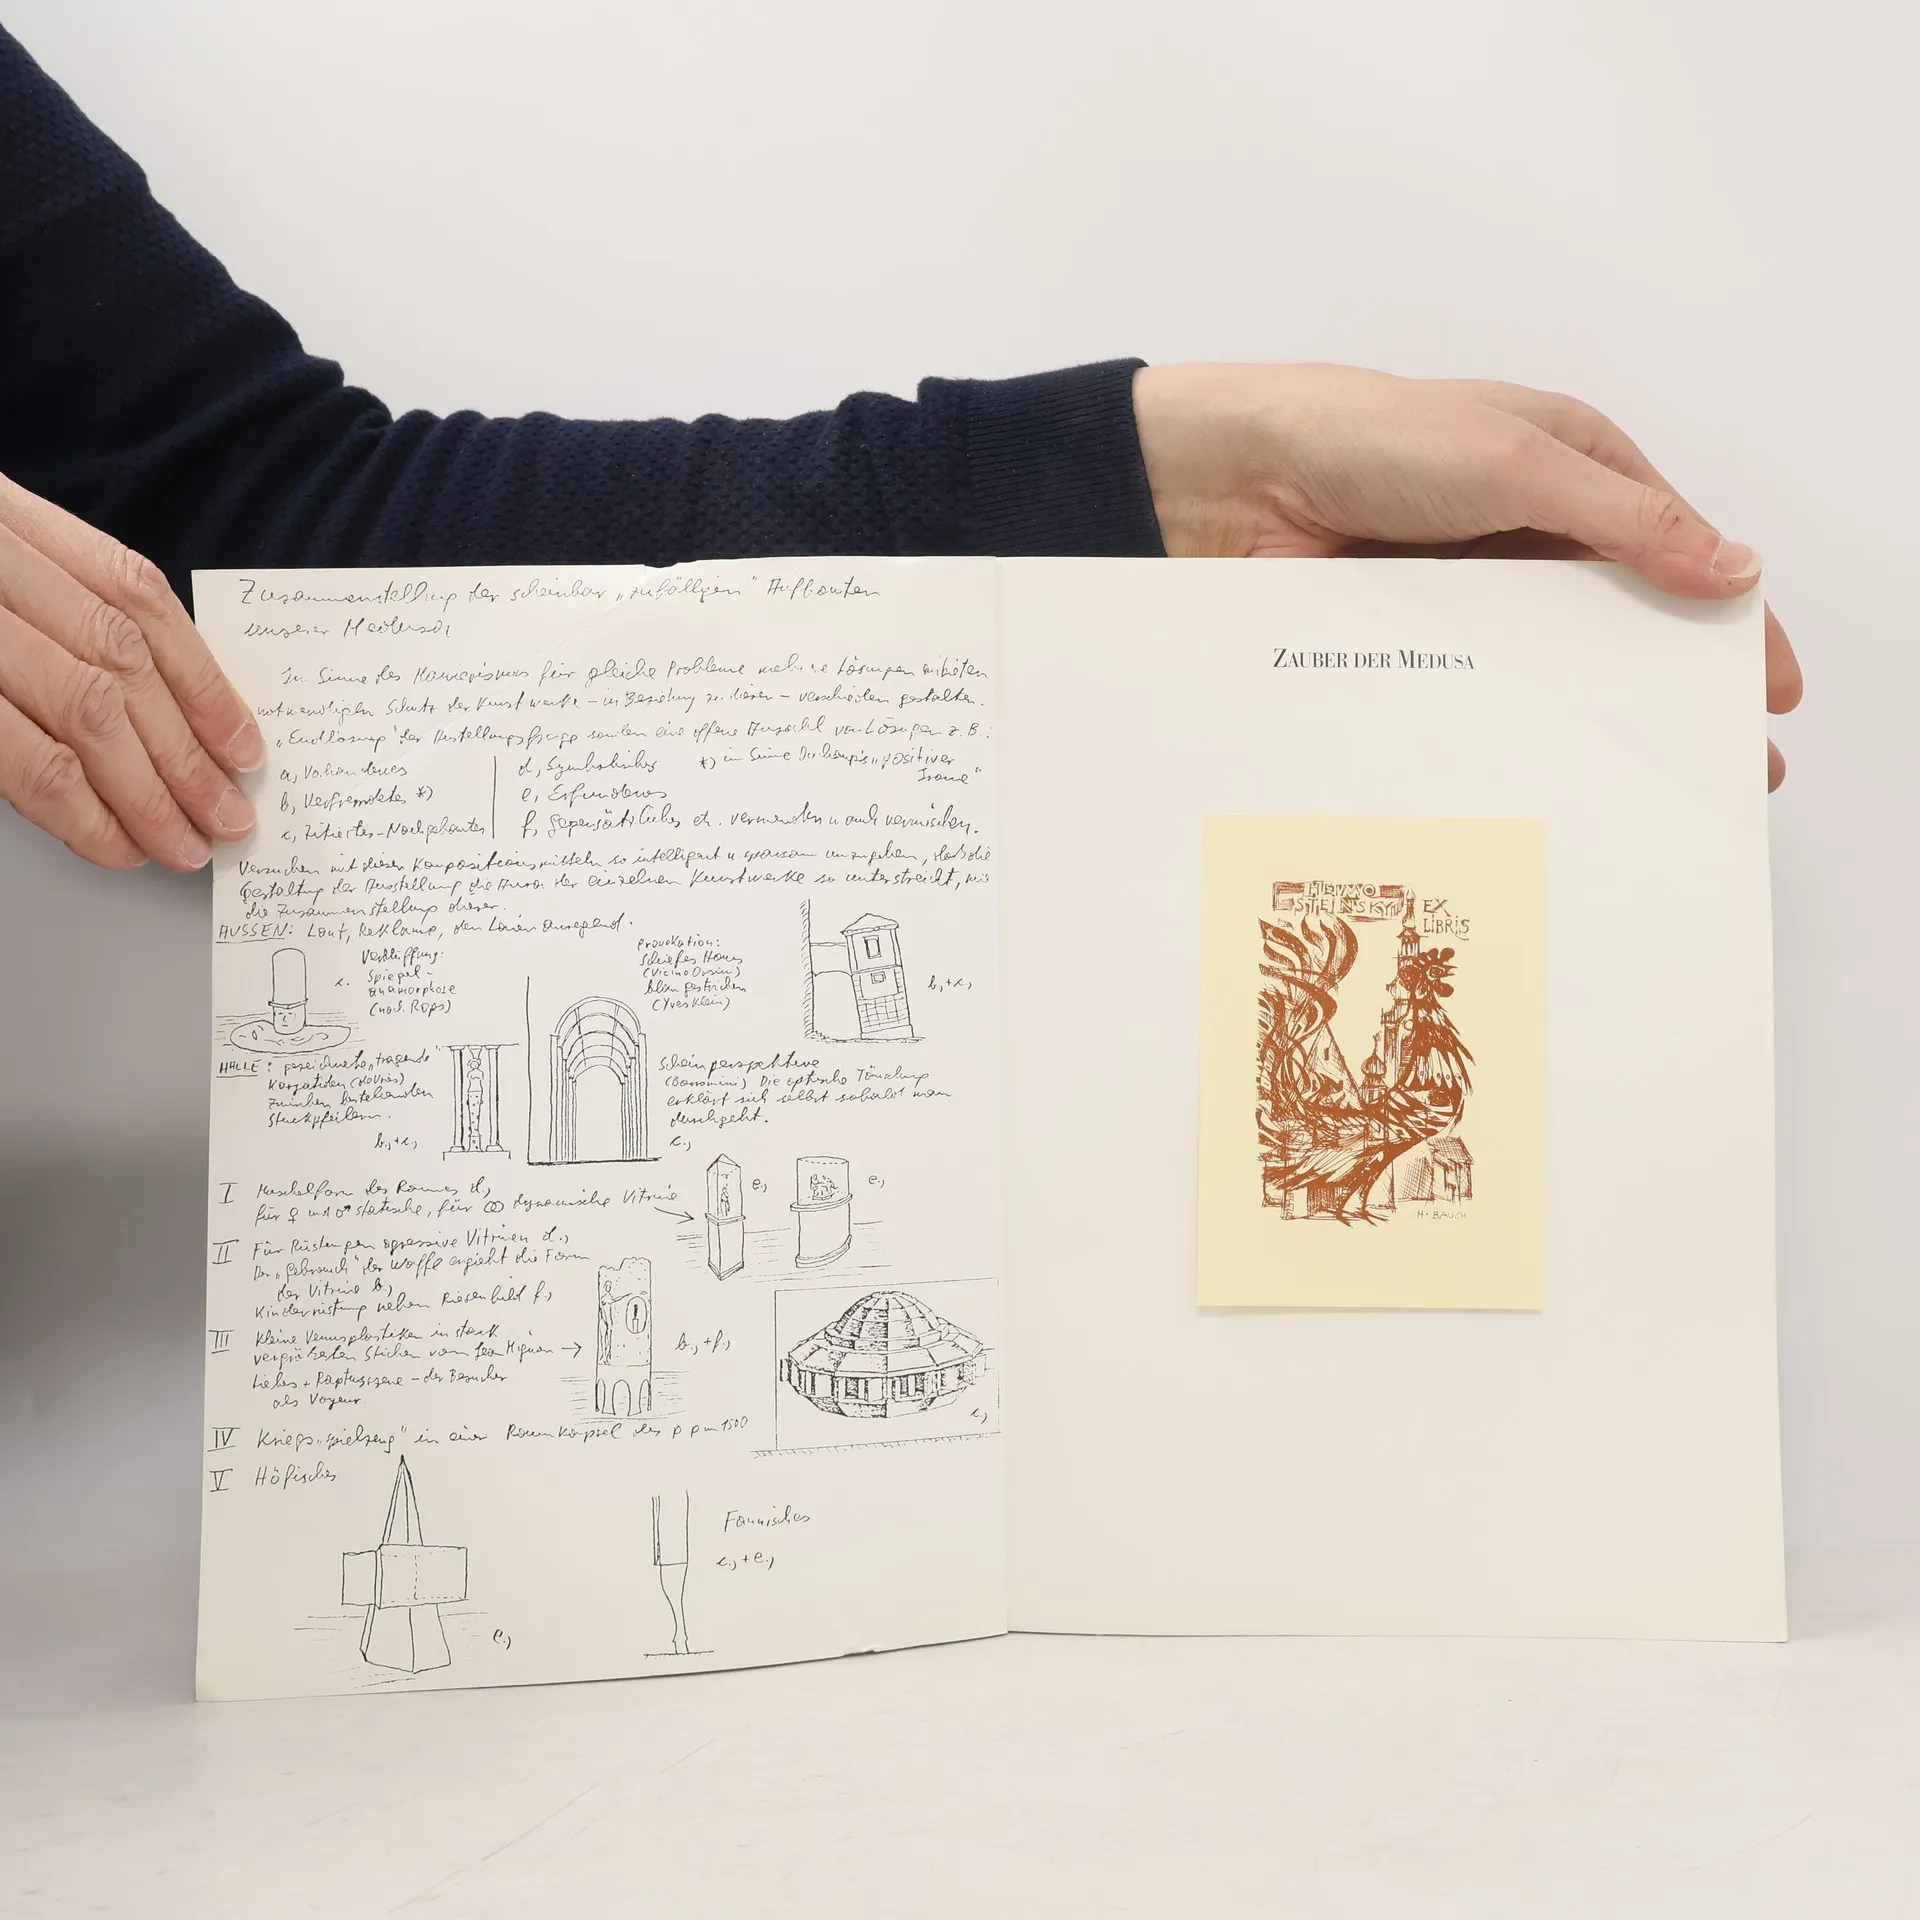 Zusammenstellung der scheinbar „zufälligen" Aufbauten
unserer Medusa
Im Sinne des Manierismus für gleiche Probleme mehrere Lösungen anbieten
notwendigen Schutz der Kunstwerke – in Beziehung zu diesen – verschieden gestalten.
„Endlösung" der Austellungsfrage sondern eine offene Anzahl von Lösungen z.B.:
a, Vorhandenes
b, Verfremdetes *)
c, Zitiertes-Nachgebautes
d, Symbolisches
e, Erfundenes
f, gegensätzliches etc. verwenden u auch vermischen.
*) im Sinne Duchamp's „positiver
Ironie"
Versuchen mit diesen Kompositionsmitteln so intelligent u sparsam umzugehen, daß die
Gestaltung der Ausstellung die Aura der einzelnen Kunstwerke so unterstreicht, wie
die Zusammenstellung dieser.
AUSSEN: Laut, Reklame, den Laien anregend.
Verblüffung:
Spiegel-
anamorphose
(nach Rops)
c.
Provokation:
Schiefes Haus
(Vicino Orsini)
blau gestrichen
(Yves Klein)
b,+c,
HALLE: gezeichnete „tragende"
Karyatiden (deVries)
zwischen bestehenden
Stuckpfeilern.
b.,+c.,
Scheinperspektive
(Borromini) Die optische Täuschung
erklärt sich selbst sobald man
durchgeht.
c.,
I Muschelform des Raumes d.,
für ♀ und ♂ statische, für ⚭ dynamische Vitrine
e.,
e.,
II Für Rüstungen agressive Vitrinen d.,
Der „Gebrauch" der Waffe ergiebt die Form
der Vitrine b.,
Kinderrüstung neben Riesenbild f.,
III Kleine Venusplastiken in stark
vergrößerten Stichen von Jean Mignon →
Liebes + Raptusszene – der Besucher
als Voyeur.
b.,+f.,
c.,
IV Kriegs„spielzeug" in einer Raumkapsel des um 1500
V Höfisches
e.,
Faunisches
c.,+e.,
ZAUBER DER MEDUSA
HEIMO
STEINSKY
EX
LIBRIS
H·BAUCH